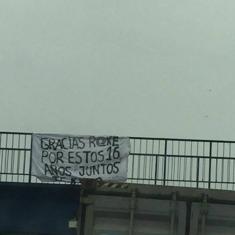 GRACIAS ROXE
POR ESTOS 16
AÑOS JUNTOS